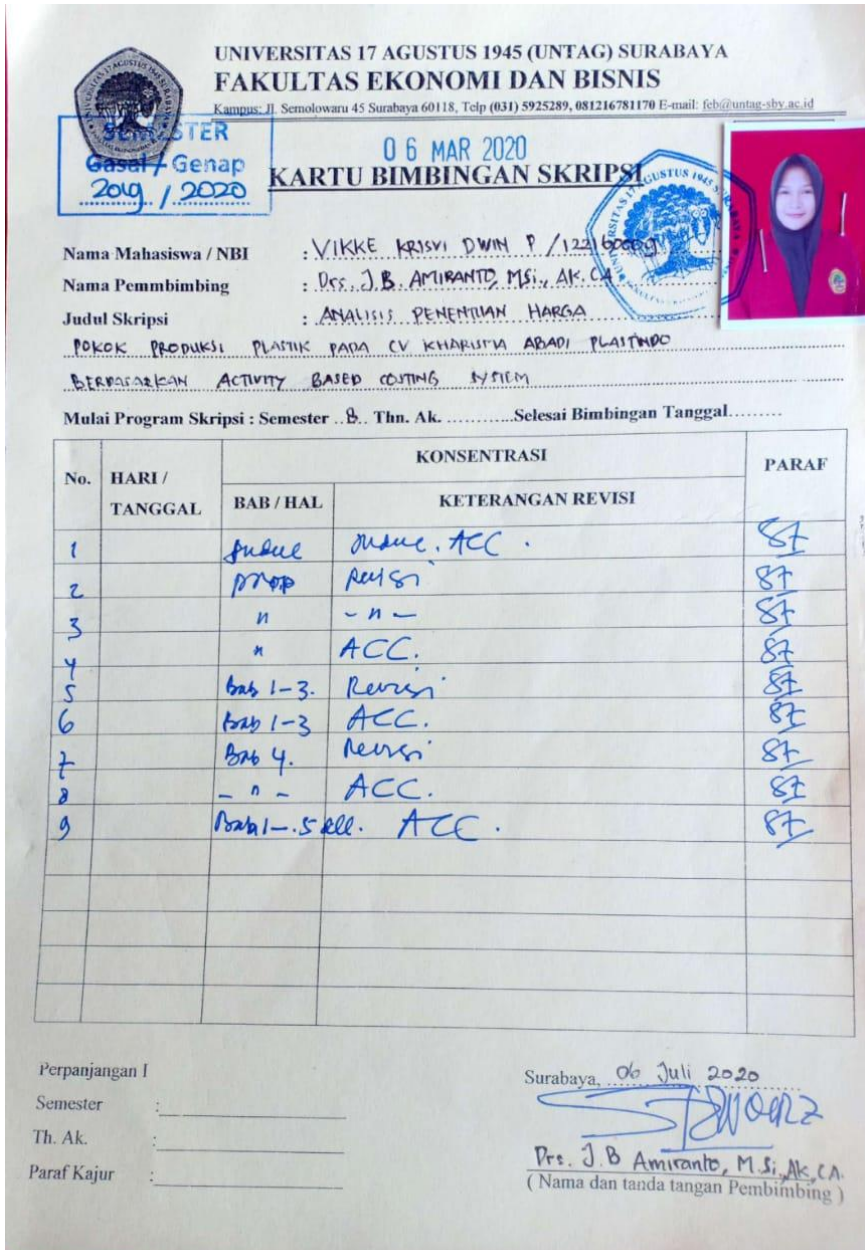 UNIVERSITAS 17 AGUSTUS 1945 (UNTAG) SURABAYA
FAKULTAS EKONOMI DAN BISNIS
Kampus: Jl. Semolowaru 45 Surabaya 60118, Telp (031) 5925289, 081216781170 E-mail: feb@untag-sby.ac.id
SEMESTER
Gasal / Genap
2019 / 2020
06 MAR 2020
KARTU BIMBINGAN SKRIPSI
Nama Mahasiswa / NBI : VIKKE KRISVI DWIN P /
Nama Pemmbimbing : Drs. J.B. AMIRANTO, MSi., AK. CA
Judul Skripsi : ANALISIS PENENTUAN HARGA
POKOK PRODUKSI PLASTIK PADA CV KHARISMA ABADI PLASTINDO
BERDASARKAN ACTIVITY BASED COSTING SYSTEM
Mulai Program Skripsi : Semester ..8.. Thn. Ak. .............Selesai Bimbingan Tanggal.........
No. HARI / TANGGAL KONSENTRASI PARAF
BAB / HAL KETERANGAN REVISI
1 Judul Judul. ACC.
2 prop Revisi
3 " - " -
4 " ACC.
5 Bab 1-3. Revisi
6 Bab 1-3 ACC.
7 Bab 4. Revisi
8 - " - ACC.
9 Bab 1-.5 ACC.
Perpanjangan I
Semester :
Th. Ak. :
Paraf Kajur :
Surabaya, 06 Juli 2020
Drs. J.B Amiranto, M.Si,Ak,CA.
( Nama dan tanda tangan Pembimbing )